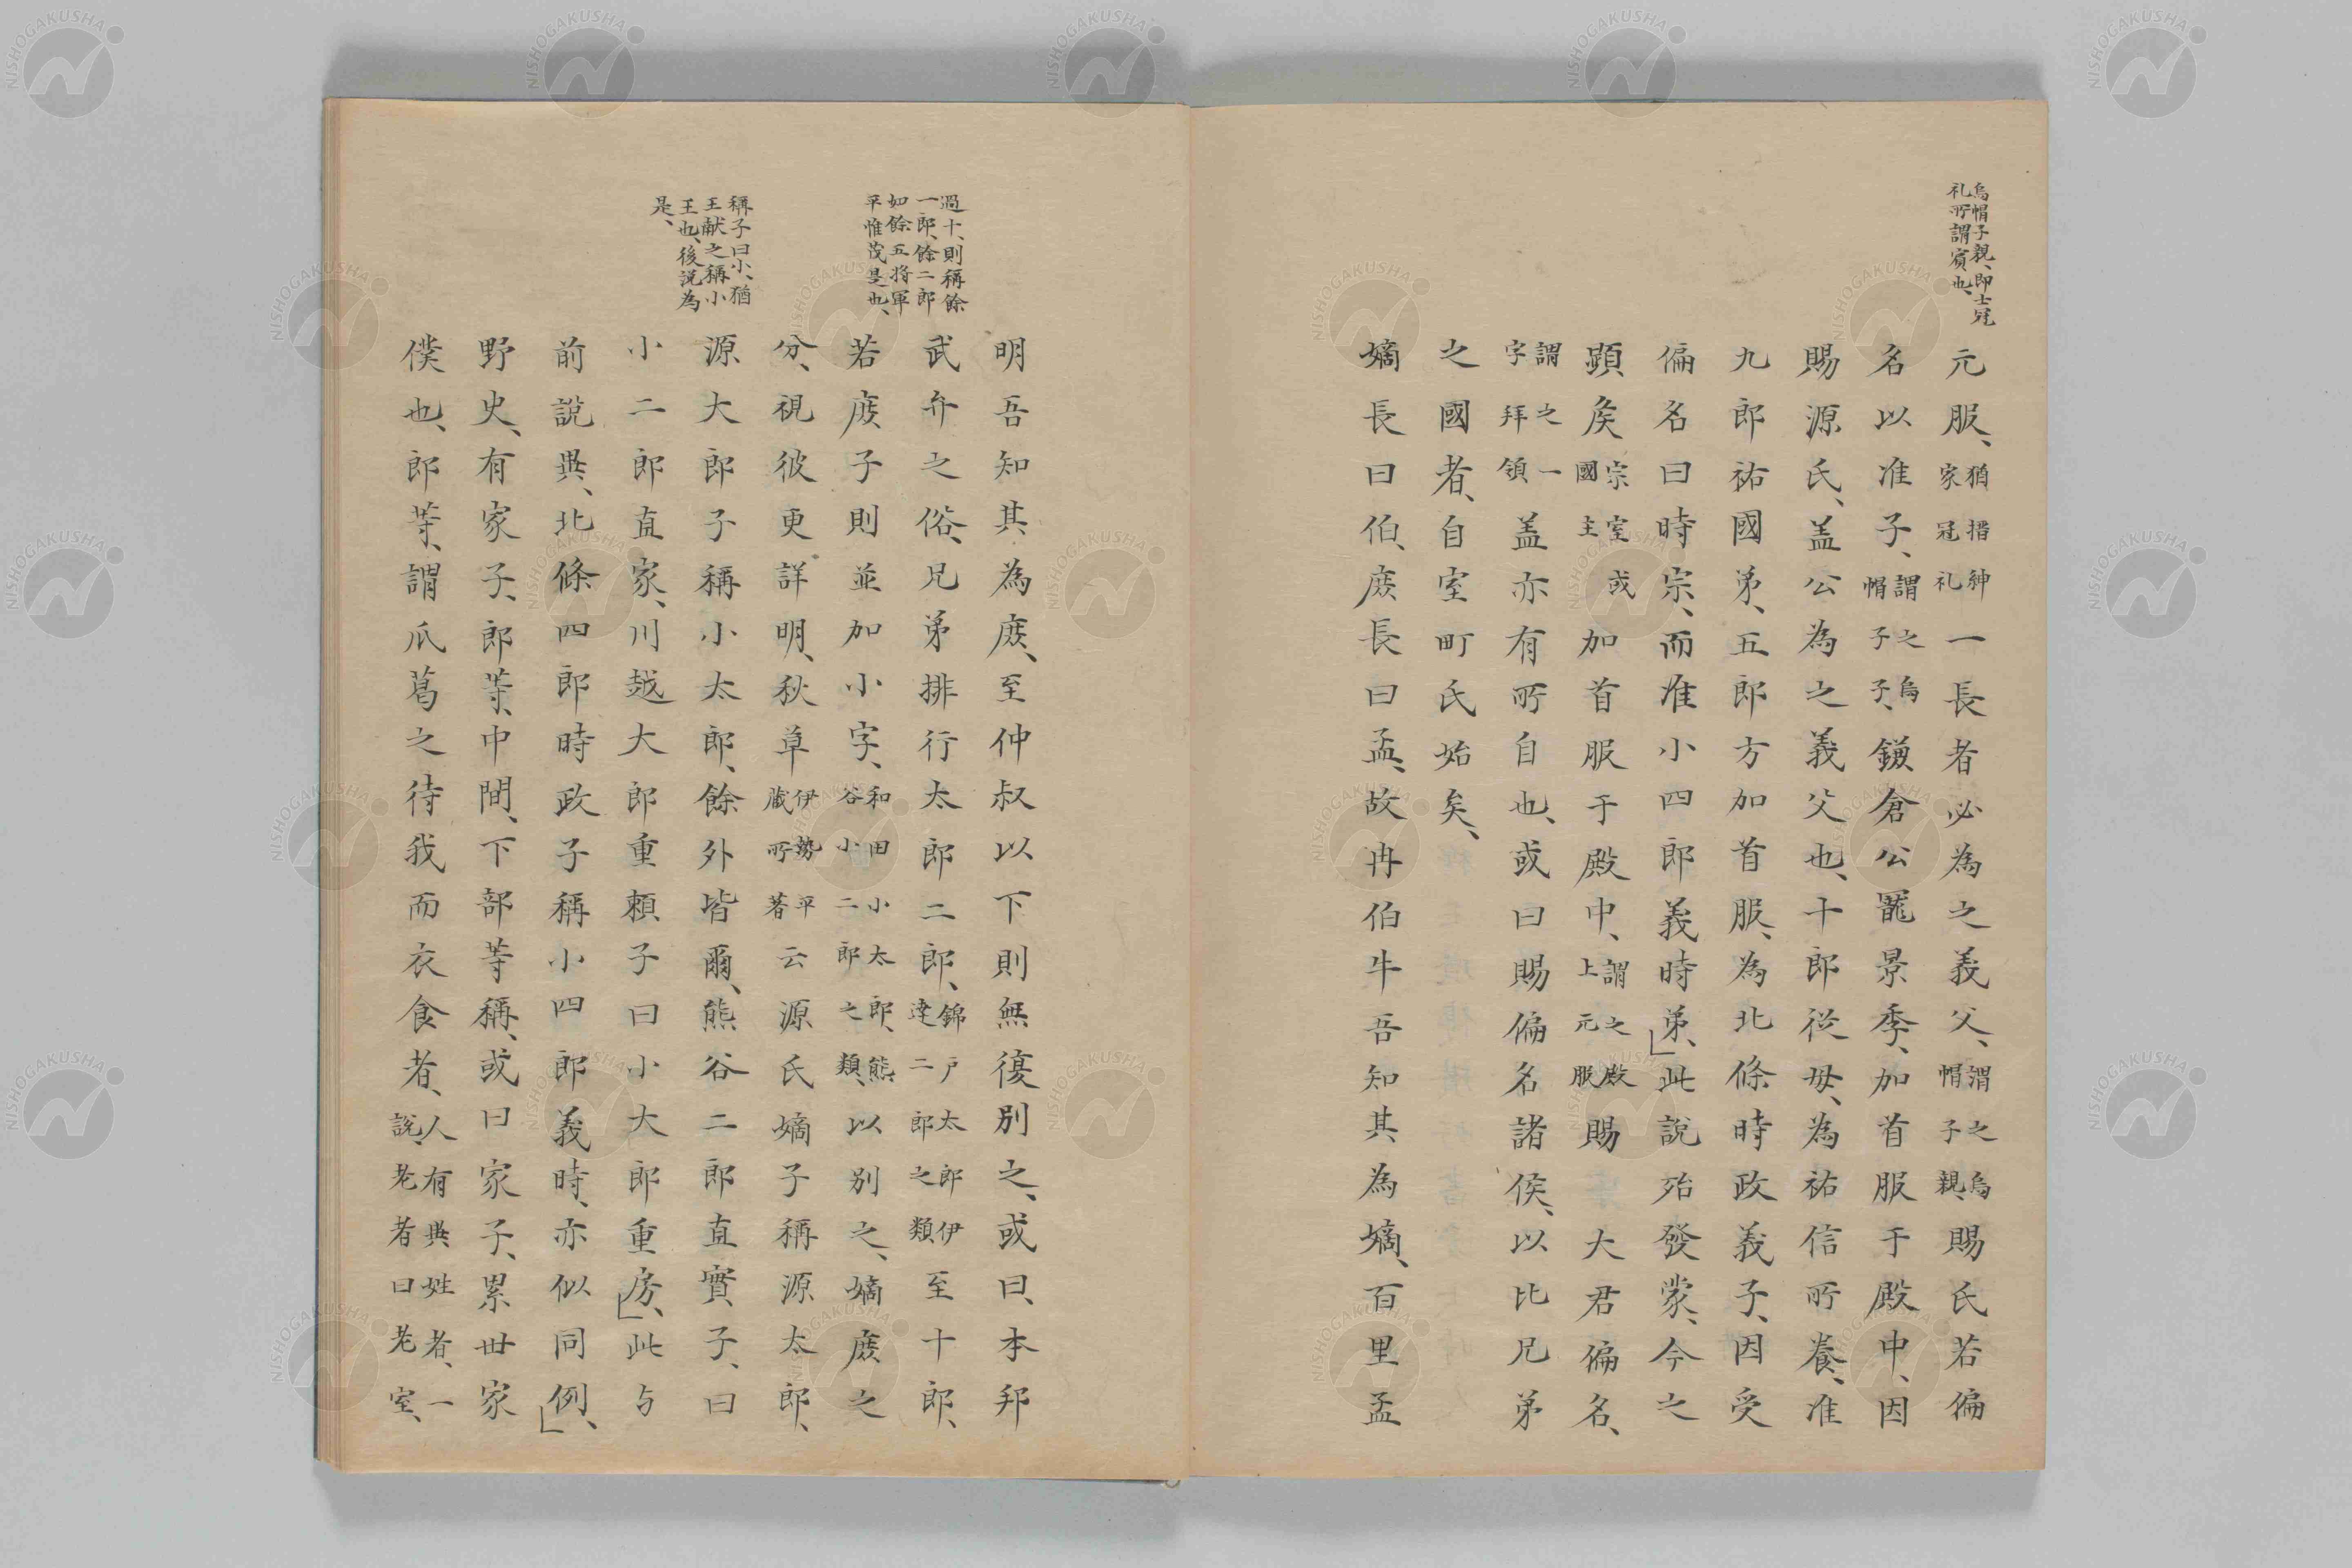 烏帽子親、即士冠
礼所謂賓也、
元服、猶搢紳家冠礼一長者必為之義父、謂之烏帽子親、賜氏若偏
名以准子、謂之烏帽子子、鎌倉公寵景季、加首服于殿中、因
賜源氏、盖公為之義父也、十郎従母、為祐信所養、准
九郎祐國弟、五郎方加首服、為北條時政義子、因受
偏名曰時宗、而准小四郎義時弟、此説殆發蒙、今之
顕矦宗室或國主加首服于殿中、謂之殿上元服賜 大君偏名、
謂之一字拝領盖亦有所自也、或曰賜偏名諸侯、以比兄弟
之國者、自室町氏始矣、
嫡長曰伯、庻長曰孟、故冉伯牛吾知其為嫡、百里孟
過十、則稱餘
一郎、餘二郎
如餘五将軍
平惟茂是也、
稱子曰小、猶
王献之稱小
王也、後説為
是、
明吾知其為庻、至仲叔以下則無復別之、或曰、本邦
武弁之俗、兄弟排行太郎二郎、錦戸太郎伊達二郎之類至十郎、
若庻子則並加小字、和田小太郎、熊谷小二郎之類、以別之、嫡庻之
分、視彼更詳明、秋草伊勢平蔵所著云源氏嫡子稱源太郎、
源大郎子稱小太郎、餘外皆爾、熊谷二郎直實、子、曰
小二郎直家、川越大郎重頼子曰小大郎重房、此与
前説異、北條四郎時政子稱小四郎義時、亦似同例、
野史、有家子、郎等、中間、下部等稱、或曰家子、累世家
僕也、郎等、謂瓜葛之待我而衣食者、人有異姓者、一説、老者曰老室、